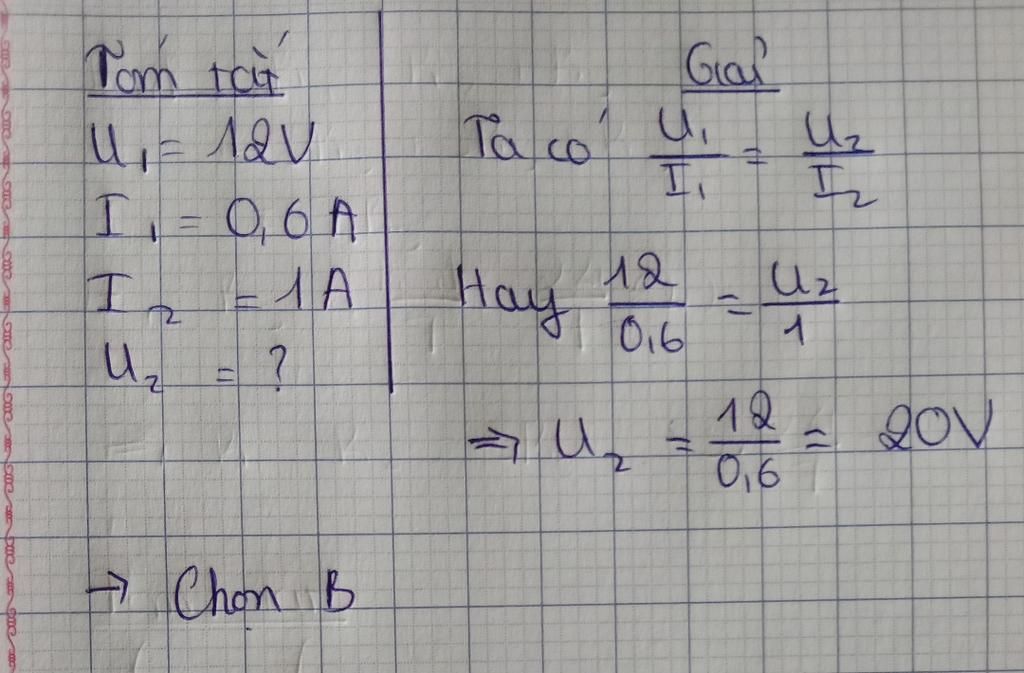 Tóm tắt
U₁ = 12V
I₁ = 0,6 A
I₂ = 1A
U₂ = ?
Giải
Ta có U₁/I₁ = U₂/I₂
Hay 12/0,6 = U₂/1
⇒ U₂ = 12/0,6 = 20V
→ Chọn B